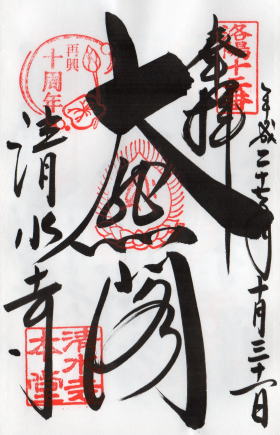 奉拝
平成二十七年十月三十一日
大悲閣
清水寺
再興
十周年
清水寺
本堂